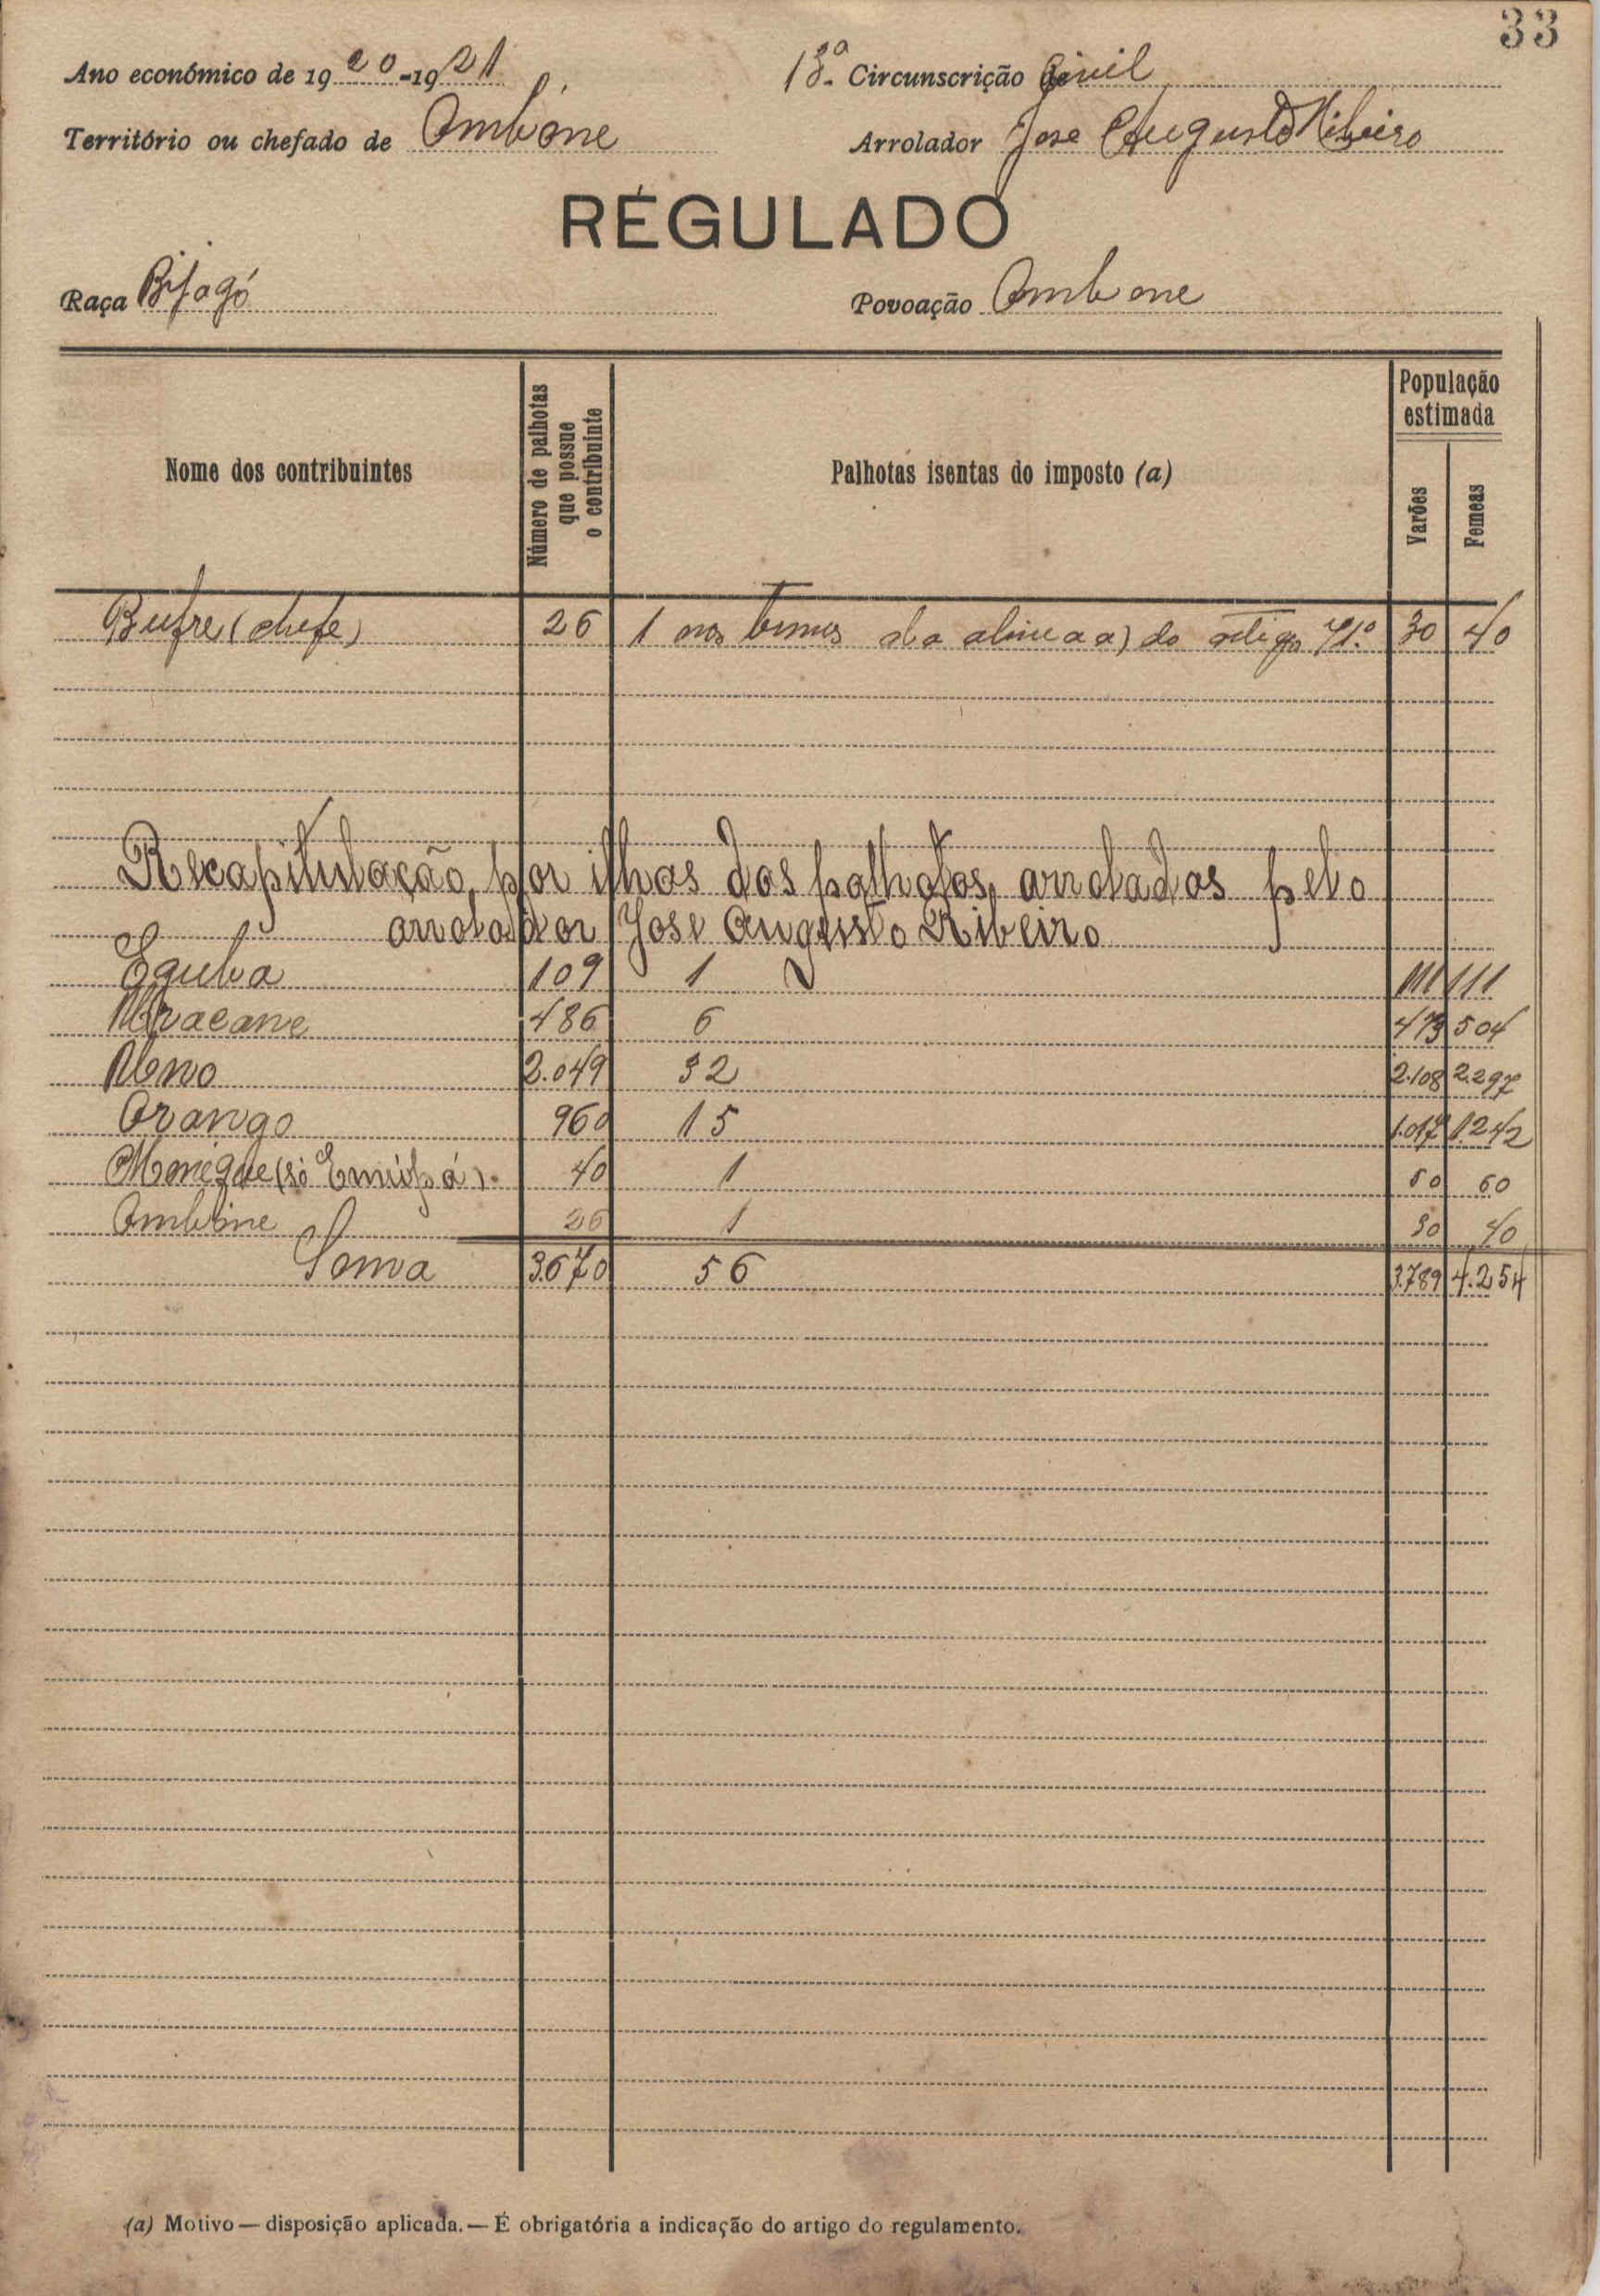 33
Ano económico de 1920-1921
13ª Circunscrição Civil
Território ou chefado de Ambóne
Arrolador José Augusto Ribeiro
REGULADO
Raça Bijagó
Povoação Ambone
Nome dos contribuintes
Número de palhotas que possue o contribuinte
Palhotas isentas do imposto (a)
População estimada
Varões
Femeas
Bufre (chefe) 26 1 nos termos da alinea a) do artigo 71.º 30 40
Recapitulação, por ilhas das palhotas, arroladas pelo
arrolador José Augusto Ribeiro
Eguba 109 1 111 111
486 6 473 504
Uno 2.049 32 2.108 2.297
Orango 960 15 1.017 1.242
Menégue (só ). 40 1 50 60
Ambóne 26 1 30 40
Soma 3.670 56 3.789 4.254
(a) Motivo — disposição aplicada. — É obrigatória a indicação do artigo do regulamento.